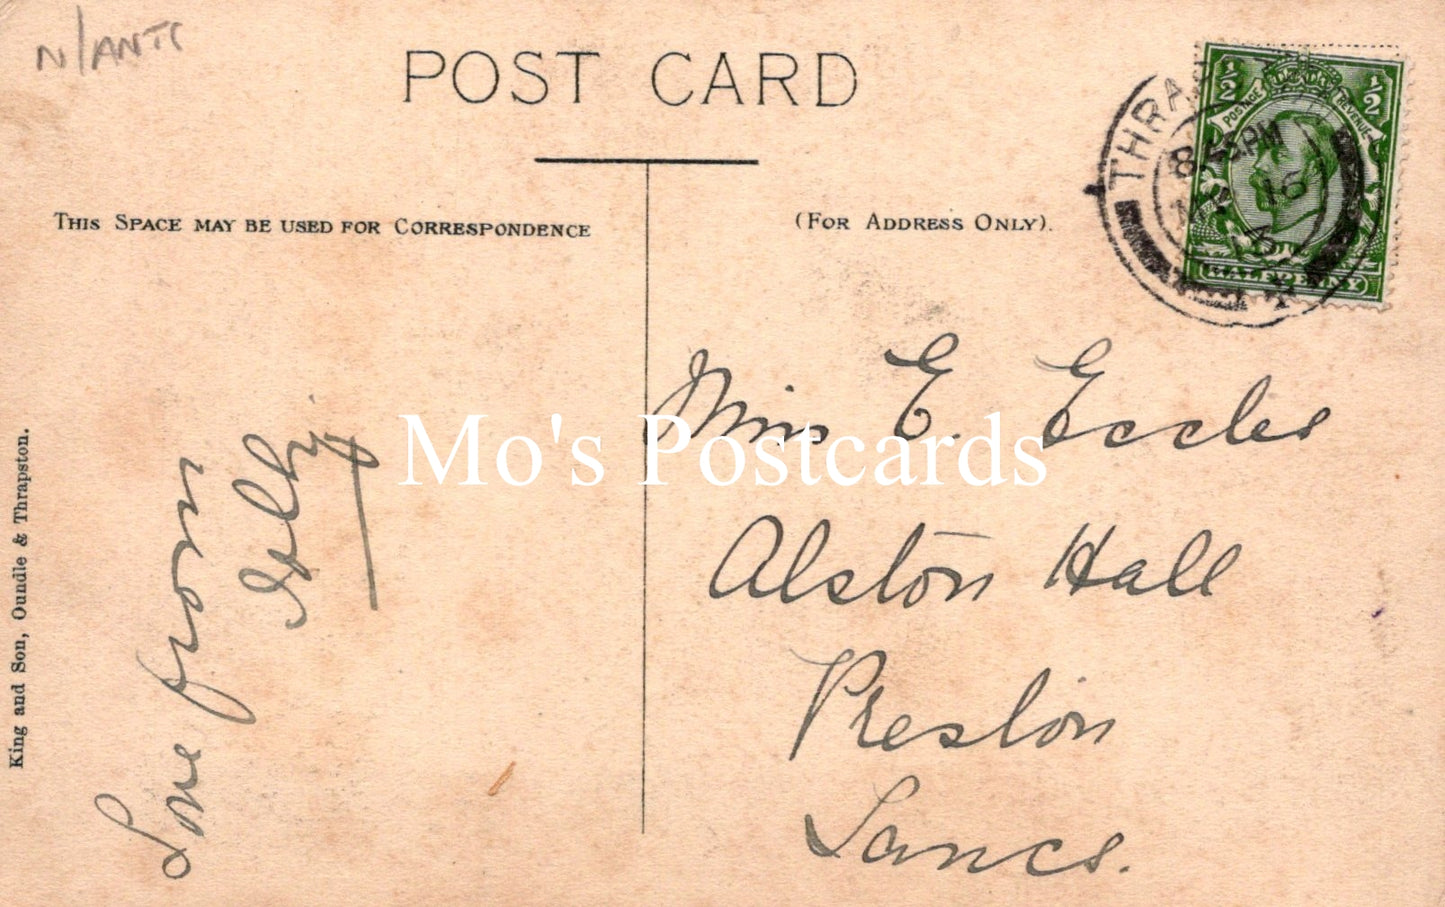 N/ANTS
POST CARD
THIS SPACE MAY BE USED FOR CORRESPONDENCE
(FOR ADDRESS ONLY).
½ ½
POSTAGE REVENUE
HALFPENNY
THRA
PM
16
Love from
King and Son, Oundle & Thrapston.
Mo's Postcards
Miss E. Eccles
Alston Hall
Preston
Lancs.